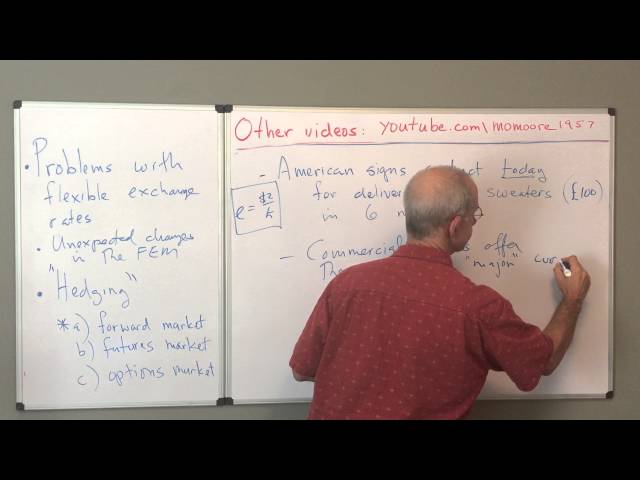 • Problems with
flexible exchange
rates
• Unexpected changes
in the FEM
• "Hedging"
* a) forward market
b) futures market
c) options market
Other videos: youtube.com\momoore1957
- American signs today
for deliver sweaters (£100)
in 6
e = $2/£
- Commercial offer
The "major" curr